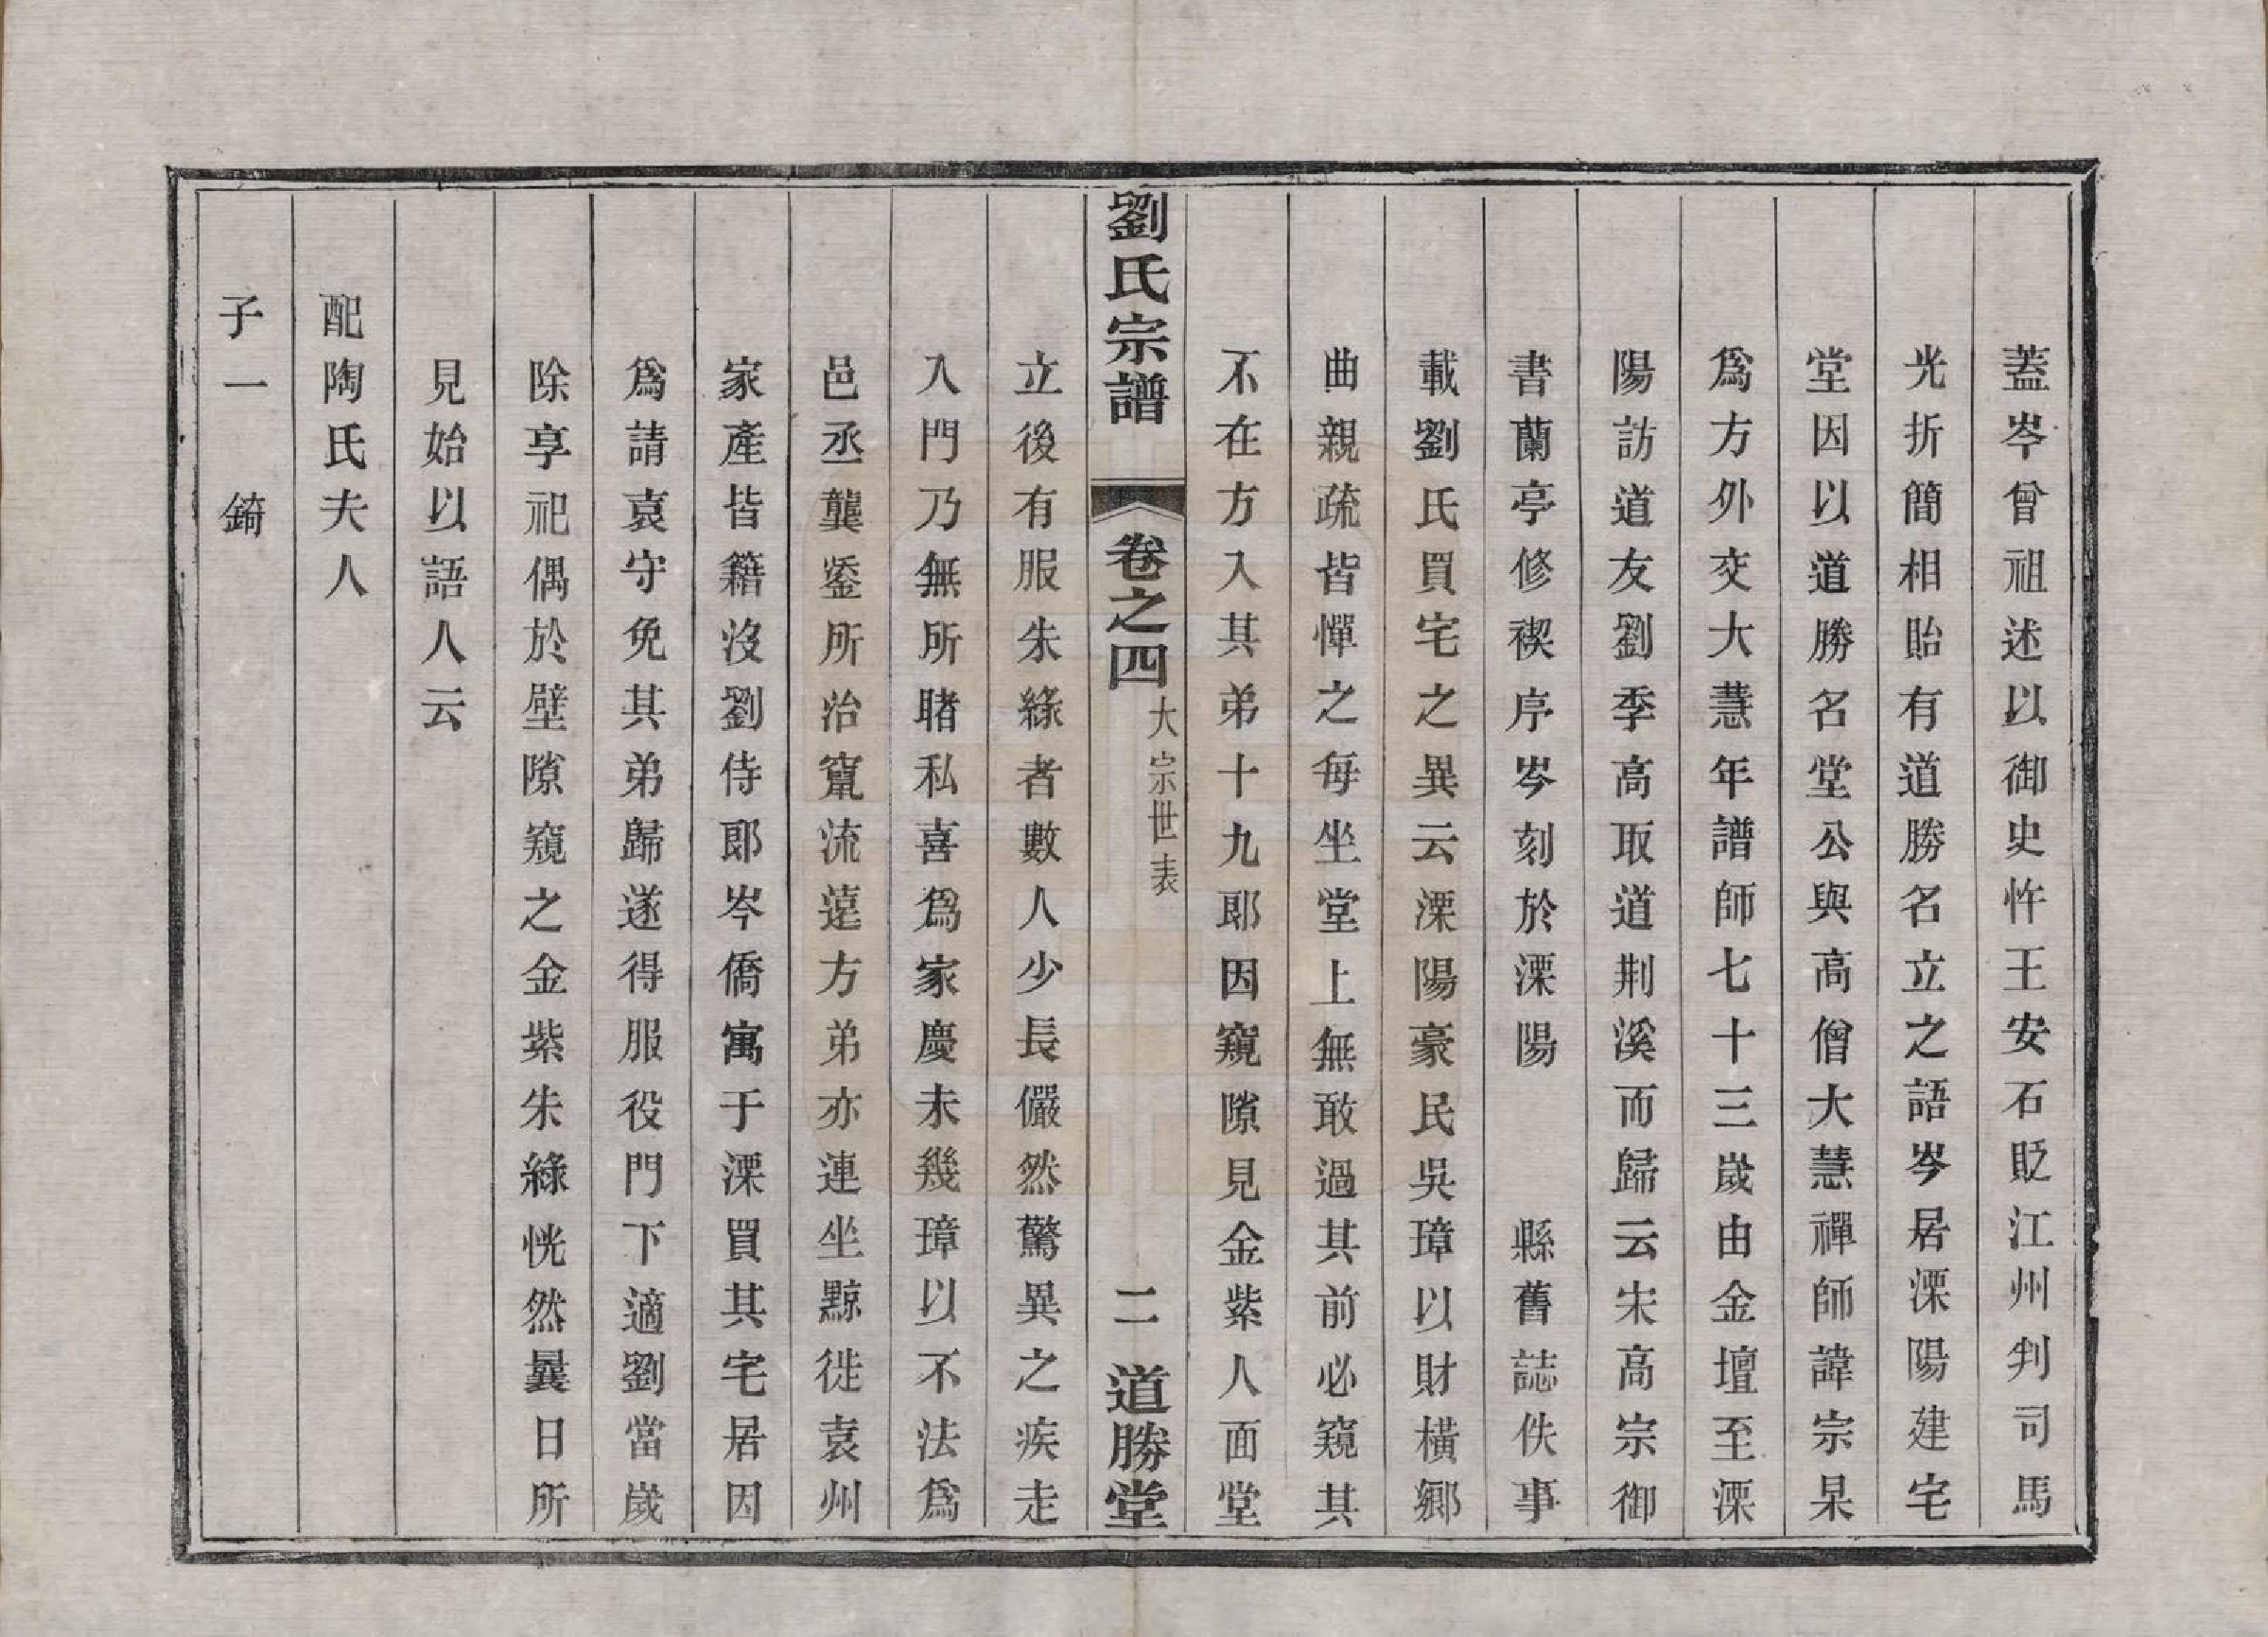 蓋岑曾祖述以御史忤王安石貶江州判司馬
光折簡相貽有道勝名立之語岑居溧陽建宅
堂因以道勝名堂公與高僧大慧禪師諱宗杲
爲方外交大慧年譜師七十三歲由金壇至溧
陽訪道友劉季高取道荆溪而歸云宋高宗御
書蘭亭修禊序岑刻於溧陽　縣舊誌佚事
載劉氏買宅之異云溧陽豪民吳璋以財橫鄉
曲親疏皆憚之每坐堂上無敢過其前必窺其
不在方入其弟十九郎因窺隙見金紫人面堂
劉氏宗譜　卷之四　大宗世表　二　道勝堂
立後有服朱綠者數人少長儼然驚異之疾走
入門乃無所睹私喜爲家慶未幾璋以不法爲
邑丞龔鋈所治竄流遠方弟亦連坐黥徙袁州
家產皆籍沒劉侍郎岑僑寓于溧買其宅居因
爲請袁守免其弟歸遂得服役門下適劉當歲
除享祀偶於壁隙窺之金紫朱綠恍然曩日所
見始以語人云
配陶氏夫人
子一　錡